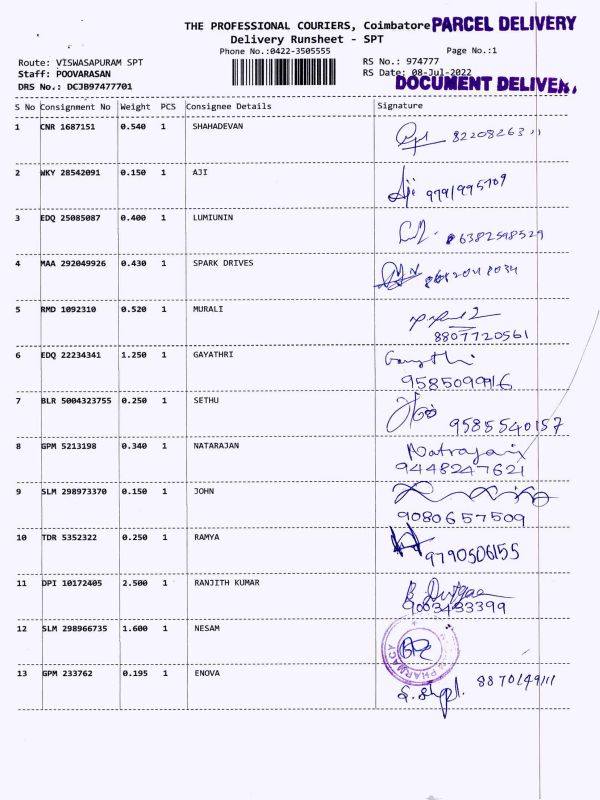 THE PROFESSIONAL COURIERS, Coimbatore PARCEL DELIVERY
Delivery Runsheet - SPT
Phone No.:0422-3505555 Page No.:1
Route: VISWASAPURAM SPT RS No.: 974777
Staff: POOVARASAN RS Date: 08-Jul-2022
DOCUMENT DELIVER
DRS No.: DCJB97477701
S No Consignment No Weight PCS Consignee Details Signature
1 CNR 1687151 0.540 1 SHAHADEVAN
2 WKY 28542091 0.150 1 AJI Aji
3 EDQ 25085087 0.400 1 LUMIUNIN 6382598529
4 MAA 292049926 0.430 1 SPARK DRIVES
5 RMD 1092310 0.520 1 MURALI
8807720561
6 EDQ 22234341 1.250 1 GAYATHRI Gayathri
9585099916
7 BLR 5004323755 0.250 1 SETHU
9585540157
8 GPM 5213198 0.340 1 NATARAJAN Natrajan
9448247621
9 SLM 298973370 0.150 1 JOHN
9080657509
10 TDR 5352322 0.250 1 RAMYA
9790506155
11 DPI 10172405 2.500 1 RANJITH KUMAR
9003433399
12 SLM 298966735 1.600 1 NESAM PHARMACY
13 GPM 233762 0.195 1 ENOVA 8870149111